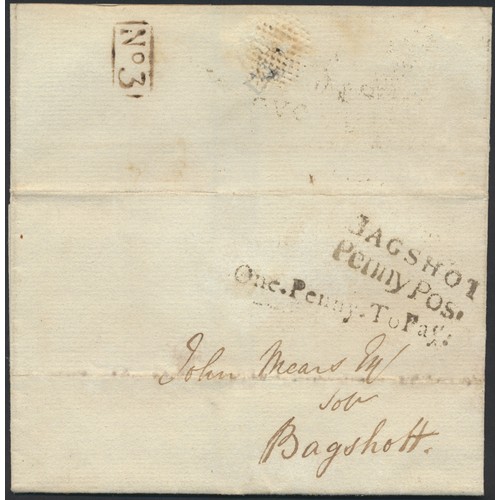 No 3
BAGSHOT
Penny Pos:
One.Penny.To Pay.
John Mears
Bagshott.